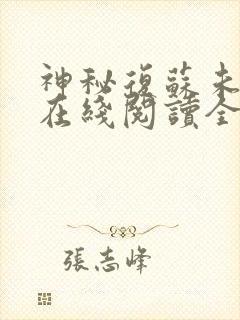 神秘復蘇未
在綫閱讀全
張志峰